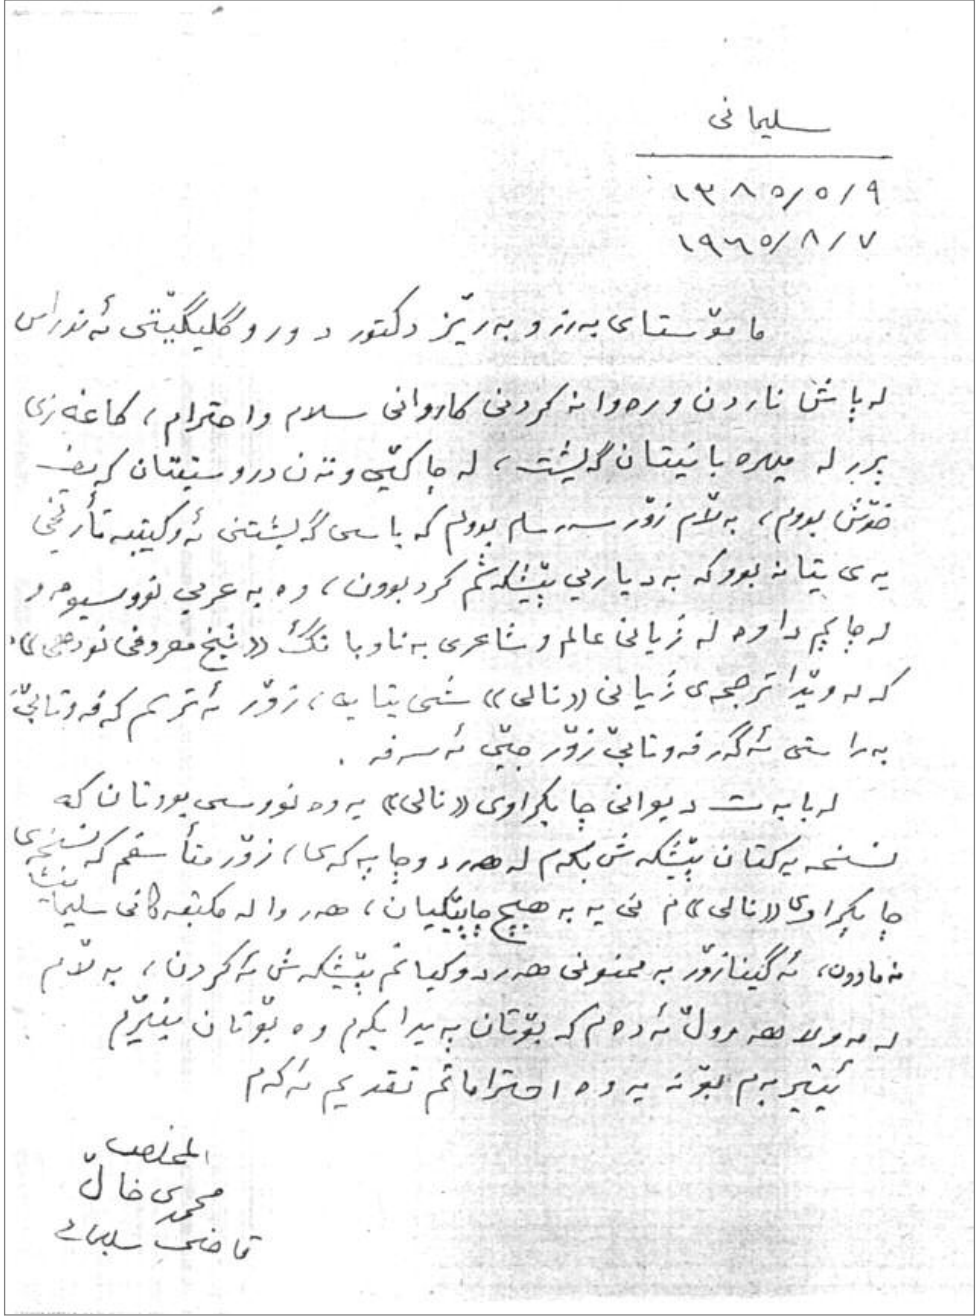 سلیمانی
١٣٨٥/٥/٩
١٩٦٥/٨/٧
مامۆستای بەرز و بەڕێز دکتور د ور و گلیگیێتی ئەندراس
لەپاش ناردن و رەوانەکردنی کاروانی سلام واحترام، کاغەزی
پڕر لە میهرەبانیتان گەیشت، لە چاکیی وتەن دروستیتان کەیف
خۆش بووم، بەڵام زۆر سەرسام بووم کە باسی گەیشتنی ئەوکتیبە تأریخی
یەی یتانە بوو کە بەدیاریی پێشکەشم کردبوون، وە بە عربی نووسیومە و
لەچاپم داوە لە ژیانی عالم و شاعری بەناوبانگ ((شیخ معروفی نودهی))،
کە لەوێدا ترجمەی ژیانی ((نالی)) شی یتایە، زۆر ئەترسم کە فەوتابێ،
بەراستی ئەگەر فەوتابێ زۆر جێی ئەسەفە.
لەبابەت دیوانی چاپکراوی ((نالی)) یەوە نووسی بوتان کە
نسخەیەکتان پێشکەش بکەم لە هەردوچاپەکەی، زۆر متأسفم کە نسخەی
چاپکراوی ((نالی)) م نی یە بە هیچ چاپێکیان، هەروا لە مکتبەکانی سلیمانیش
نەمادون، ئەگینا زۆر بە ممنونی هەردوکیانم پێشکەش ئەکردن، بەڵام
لەمەولا هەوڵ ئەدەم کە بۆتان پەیدا بکەم وە بۆتان بنێرم
ئیتر بەم بۆنەیەوە احتراماتم تقدیم ئەکەم
المخلص
محمدی خاڵ
قاضی سلیمانی